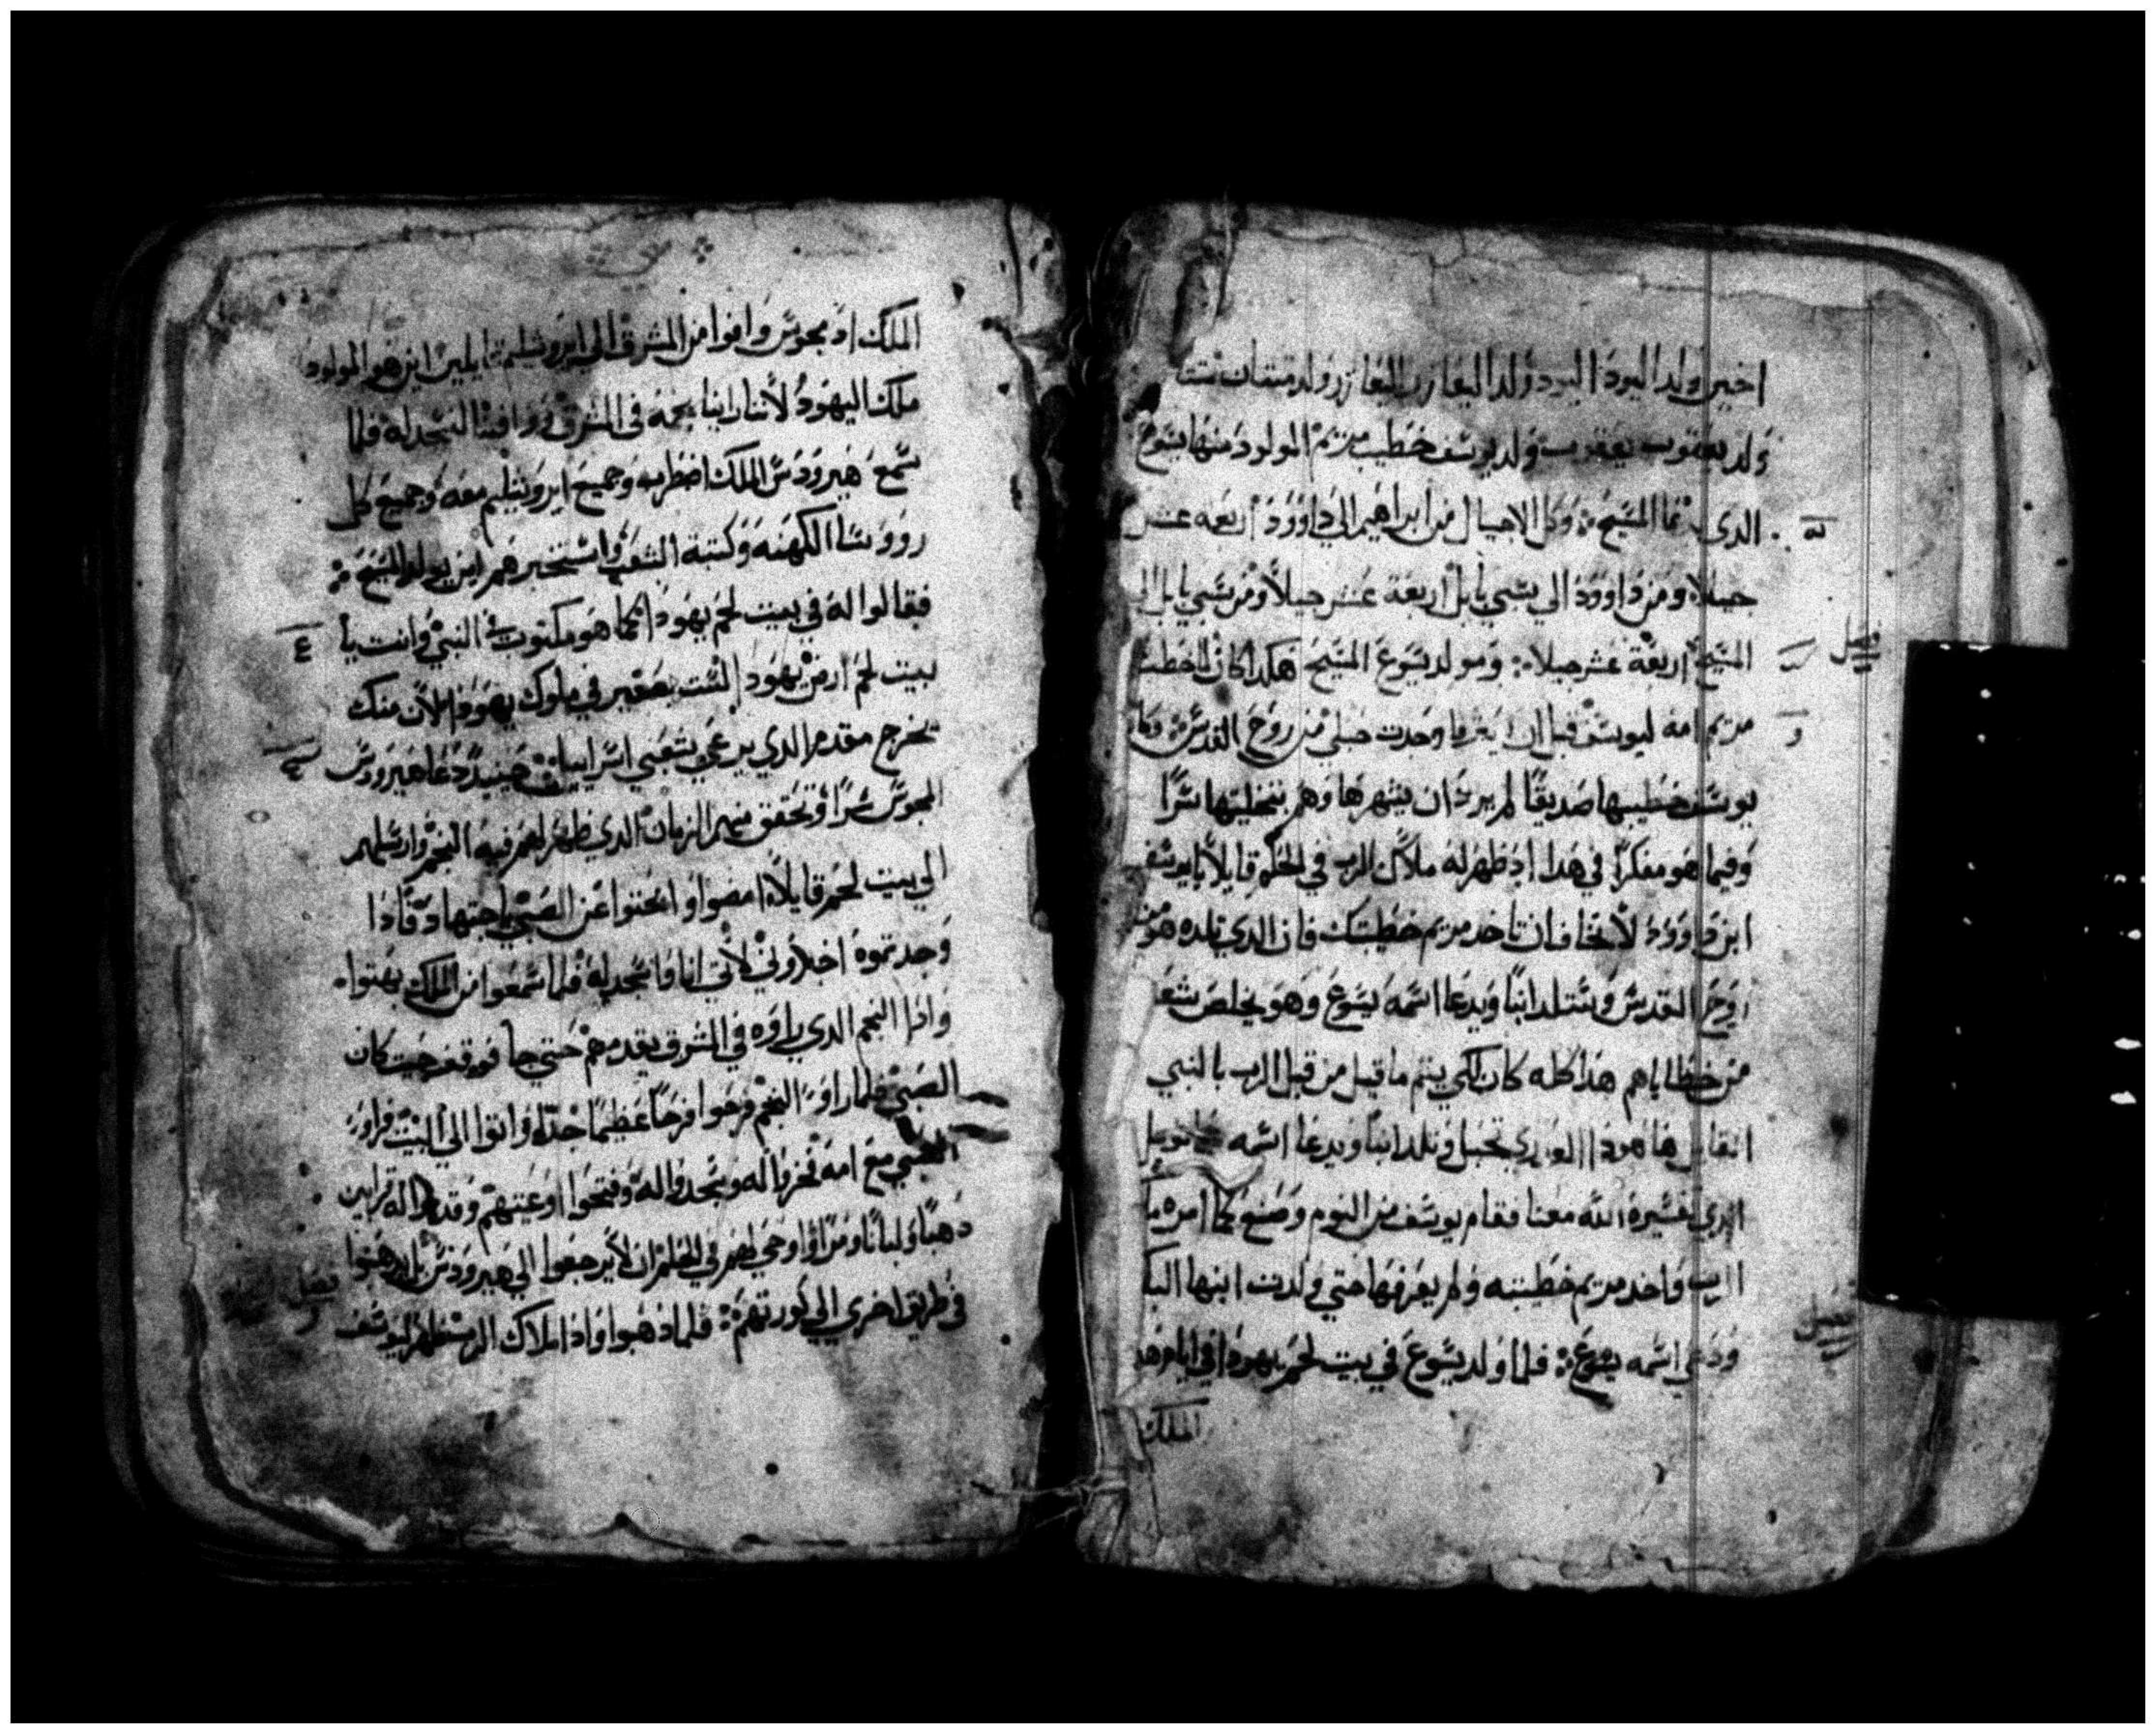 اخين ولد اليود اليود ولد اليعازر اليعازر ولد متتان متتان
ولد يعقوب يعقوب ولد يوسف خطيب مريم المولود منها يسوع
الدى المسيح وكل الاجيال من ابراهيم الى داوود اربعه عشر
جيلا ومن داوود الي سبي بابل اربعة عشر جيلا ومن سبي بابل الي
المسيح اربعة عشر جيلا ومولد يسوع المسيح هكدا كان لما خطبت
فصل
مريم امه ليوسف قبل ان يعرفها وجدت حبلي من روح القدس وكان
يوسف خطيبها صديقا لم يرد ان يشهرها وهم بتخليتها سرا
وفيما هو مفكرا في هدا اد ظهر له ملاك الرب في الحلم قايلا يا يوسف
ابن داوود لا تخاف ان تاخد مريم خطيبتك فان الدي تلده هو من
روح القدس وستلد ابنا ويدعا اسمه يسوع وهو يخلص شعبه
من خطاياهم هدا كله كان لكي يتم ما قيل من قبل الرب بالنبي
القايل ها هودا العدرى تحبل وتلد ابنا ويدعا اسمه عمانويل
الدي تفسيره الله معنا فقام يوسف من النوم وصنع كما امره ملاك
الرب واخد مريم خطيبته ولم يعرفها حتي ولدت ابنها البكر
ودعي اسمه يسوع فلما ولد يسوع في بيت لحم يهودا في ايام هيرودس
فصل
الملك
الملك اد مجوس وافوا من المشرق الي ايروشليم قايلين اين هو المولود
ملك اليهود لاننا راينا نجمه في المشرق ووافينا لنسجد له فلما
سمع هيرودس الملك اضطرب وجميع ايروشليم معه وجميع كل
رووسا الكهنه وكتبة الشعب واستخبرهم اين يولد المسيح
فقالوا له في بيت لحم يهودا كما هو مكتوب في النبي وانت يا
بيت لحم ارض يهودا لست بصغير في ملوك يهودا لان منك
يخرج مقدم الدي يرعي شعبي اسراييل حينيد دعا هيرودس
المجوس سرا وتحقق منهم الزمان الدي ظهر لهم فيه النجم وارسلهم
الي بيت لحم قايلا امضوا وابحثوا عن الصبي باجتهاد فادا
وجدتموه اخبروني لاتي انا واسجد له فلما سمعوا من الملك دهبوا
وادا النجم الدي راوه في المشرق يقدمهم حتي جا فوقف حيث كان
الصبي فلما راوا النجم فرحوا فرحا عظيما جدا واتوا الي البيت فراوا
الصبي مع امه فخروا له وسجدوا له وفتحوا اوعيتهم وقدموا له قرابين
دهبا ولبانا ومرا واوحي لهم في الحلم ان لا يرجعوا الي هيرودس بل يدهبوا
في طريق اخري الي كورتهم فلما دهبوا وادا ملاك الرب ظهر ليوسف
فصل